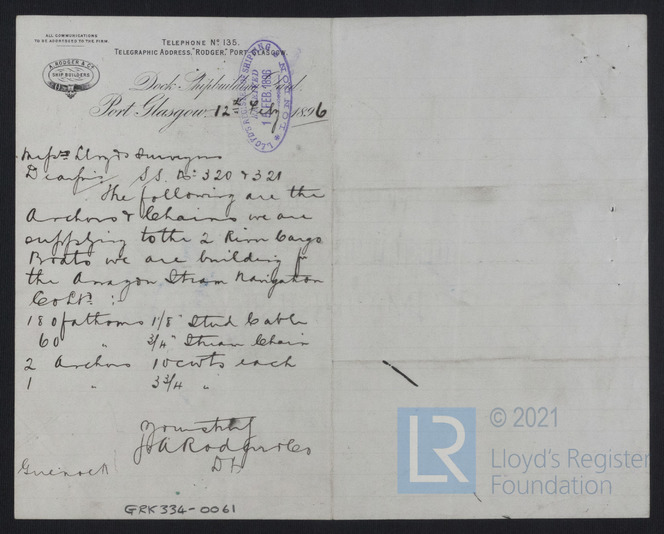 ALL COMMUNICATIONS
TO BE ADDRESSED TO THE FIRM.
TELEPHONE No 135.
TELEGRAPHIC ADDRESS, "RODGER," PORT-GLASGOW.
A. RODGER & Co
SHIP BUILDERS
Dock Shipbuilding Yard,
Port Glasgow, 12th Feby 1896
LLOYD'S REGISTER OF SHIPPING
LONDON
FEB. 1896
Messrs Lloyds Surveyors
Dear Sirs SS. No 320 & 321
The following are the
Anchors & Chains we are
supplying to the 2 River Cargo
Boats we are building for
the Amazon Steam Navigation
Co Ltd :
180 fathoms 1 1/8" Stud Cable
60 " 3/4" Stream Chain
2 Anchors 10 cwts each
1 " 3 3/4 "
Yours truly
A Rodger & Co
Greenock
GRK334-0061
LR
© 2021
Lloyd's Register
Foundation